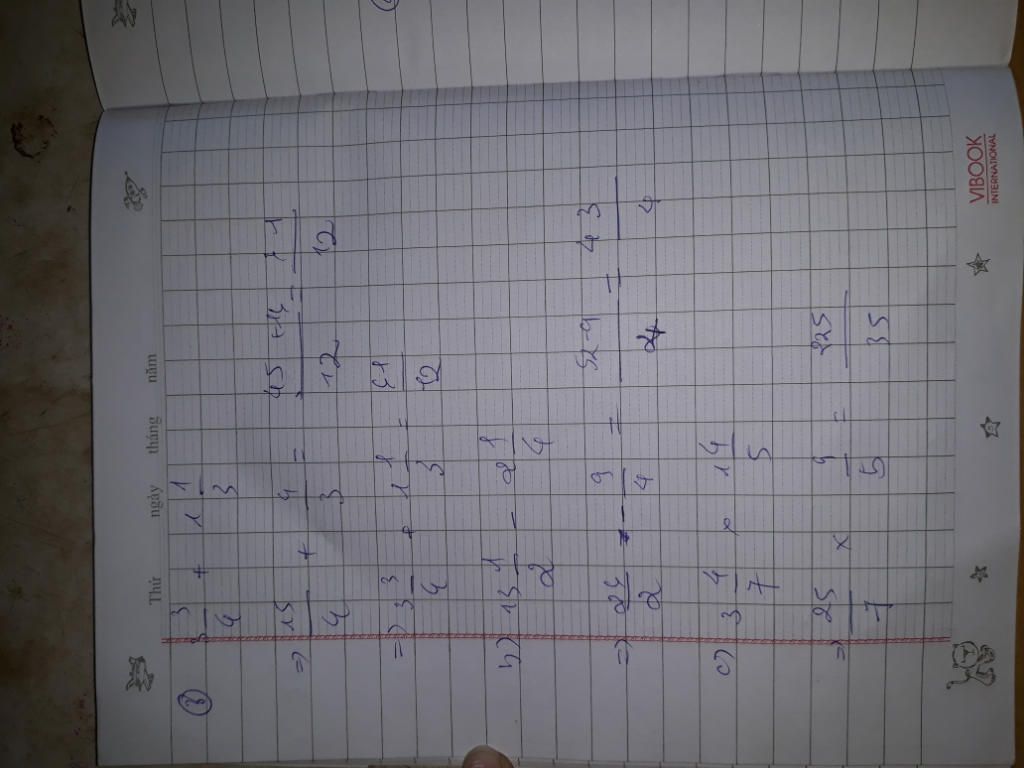 Thứ ngày tháng năm
8) 3 3/4 + 1 1/3
=> 15/4 + 4/3 = 45+14/12 = 71/12
=> 3 3/4 + 1 1/3 = 51/12
b) 13 1/2 - 2 1/4
=> 25/2 - 9/4 = 52-9/4 = 43/4
c) 3 4/7 × 1 4/5
=> 25/7 × 9/5 = 225/35
VIBOOK
INTERNATIONAL